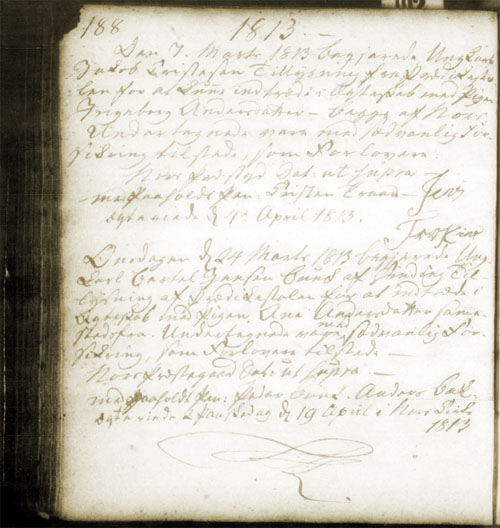 188 1813.
Den 7. Marts 1813 begjærede Ungkarl
Jakob Cristensen Tillysning fra Prædikesto
len for at kunne indtræde i Egteskab med Pigen
Ingeborg Andersdatter - begge af Nors.
Undertegnede vare med sædvanlig For
sikring tilstede, som Forlovere.
Nors Præstegd Dat: ut supra
med paaholdt Pen: Cristen
Egteviede d 4de April 1813.
Onsdagen d 24 Marts 1813 begjærede Ung
Karl Bertel Jensen af Til
lysning af Prædikestolen for at indtræde i
Egteskab med Pigen, Ane Andersdatter samme
stedsfra. Undertegnede vare med sædvanlig For
sikring, som Forlovere tilstede -
Nors Præstegaard Dat: ut supra. -
med paaholdt Pen: Peder Anders
Egteviede 2 Paaskedag d 19 April i Nors Kirke
1813